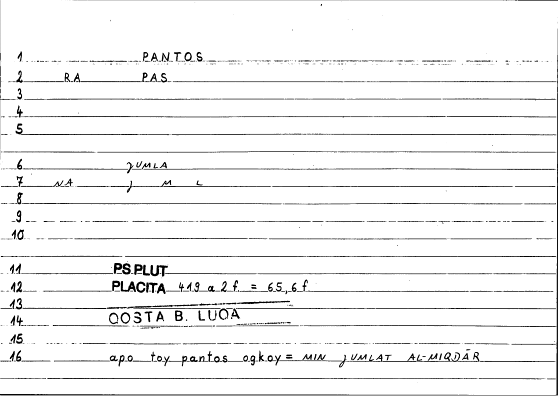 1 PANTOS
2 RA PAS
3
4
5
6 ȷUMLA
7 NA ȷ M L
8
9
10
11 PS.PLUT
12 PLACITA 419 a 2 f. = 65,6 f.
13
14 QOSTA B. LUQA
15
16 apo toy pantos ogkoy = MIN ȷUMLAT AL-MIQDĀR